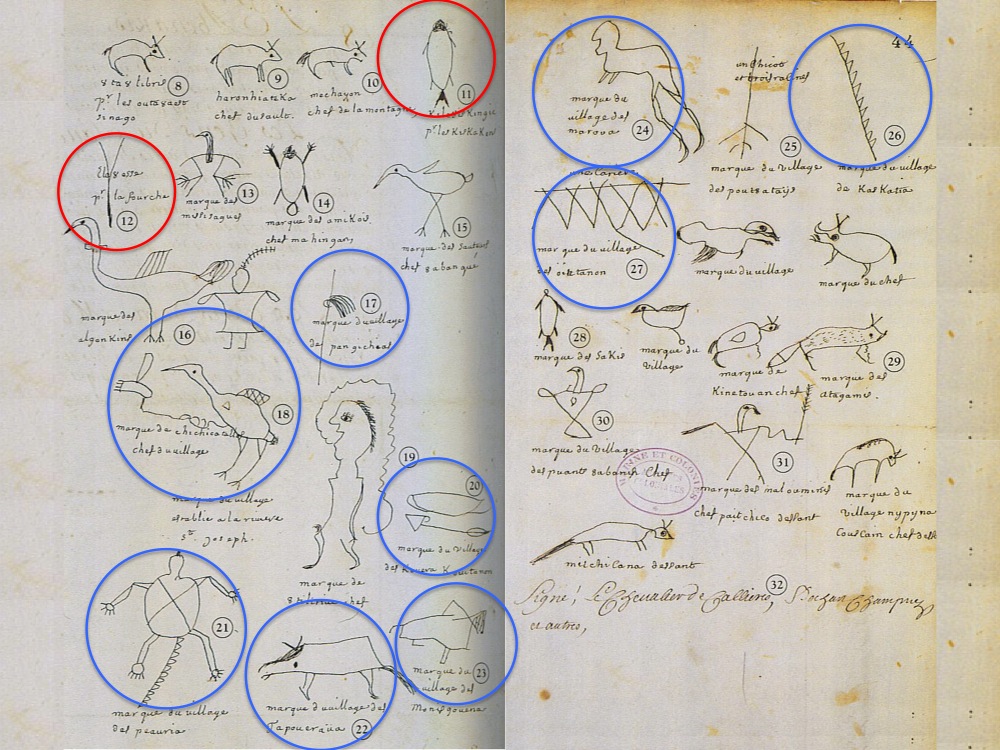 8
pr les outa8ase
sinago
9
haronhiateka
chef du sault.
10
mechayon
chef de la montagne
11
pr les KisKaKons
pr la fourche
12
13
marque des
missisagues
14
marque des amikois
chef mahingan,
15
marque des sauteurs
chef 8abangué
marque des
algonkins
16
17
marque du village
marque de chichicatalo
chef du village
18
marque du village
establie a la riviere
St. Joseph.
19
marque de
chef
20
marque du village
21
marque du village
des peauria
marque du village des
Tapouaroua 22
marque du 23
village des
Monisgouena
44
marque du
village des
maroua 24
un chicot
et trois racines
25
marque du village
des pouteatamis
26
marque du village
de KasKaKia
marque du village
des oiiatanon 27
marque du village
marque du chef
28
marque des SaKis
marque du
village
marque de
Kinetouan chef
29
marque des
atagamis.
30
marque du village
des puant 8abanis chef
31
marque des maloumins
chef paitchico dessant
marque du
village nypyna
milchilana dessant
Signé, Le Chevalier de Callière, Bochart Champigny
32
et autres,